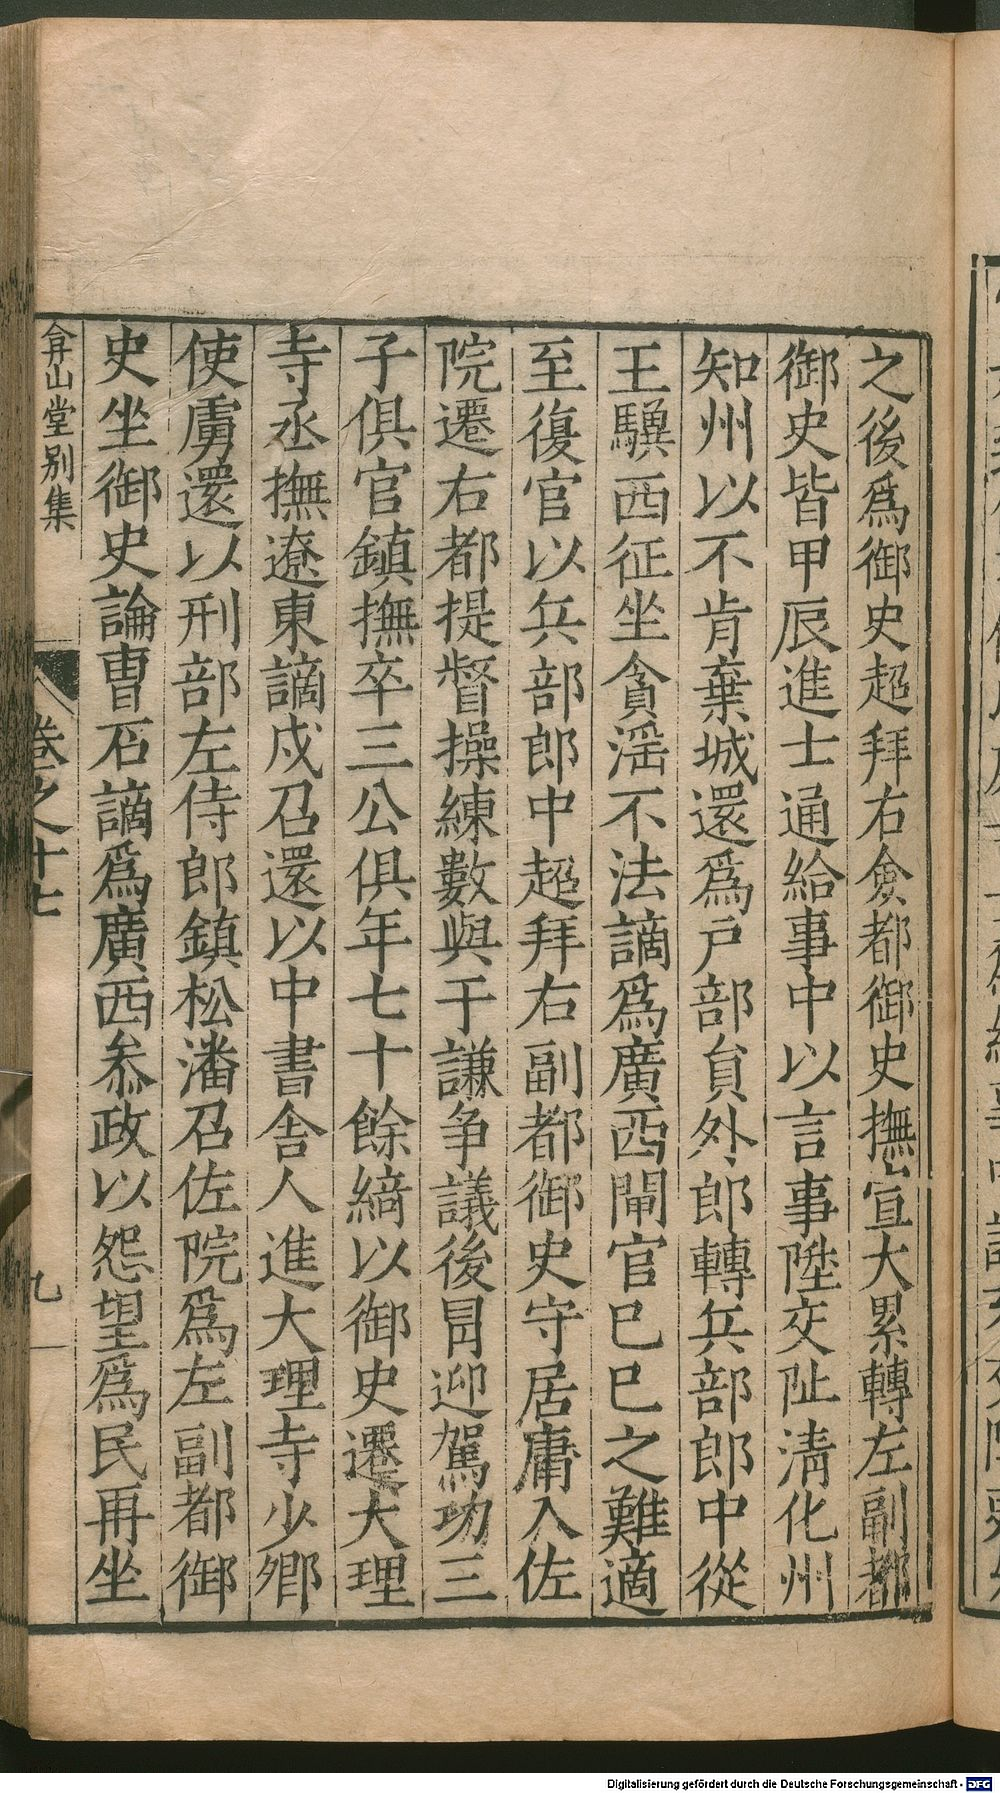 之後爲御史超拜右僉都御史撫宣大累轉左副都
御史皆甲辰進士通給事中以言事陞交阯清化州
知州以不肯棄城還爲戶部貟外郎轉兵部郎中從
王驥西征坐貪滛不法謫爲廣西閘官巳巳之難適
至復官以兵部郎中超拜右副都御史守居庸入佐
院遷右都提督操練數與于謙争議後冒迎駕功三
子俱官鎮撫卒三公俱年七十餘綈以御史遷大理
寺丞撫遼東謫戍召還以中書舍人進大理寺少卿
使虜還以刑部左侍郎鎮松潘召佐院爲左副都御
史坐御史論曹石謫爲廣西叅政以怨望爲民再坐
弇山堂别集
卷之十七
九
Digitalisierung gefördert durch die Deutsche Forschungsgemeinschaft - DFG